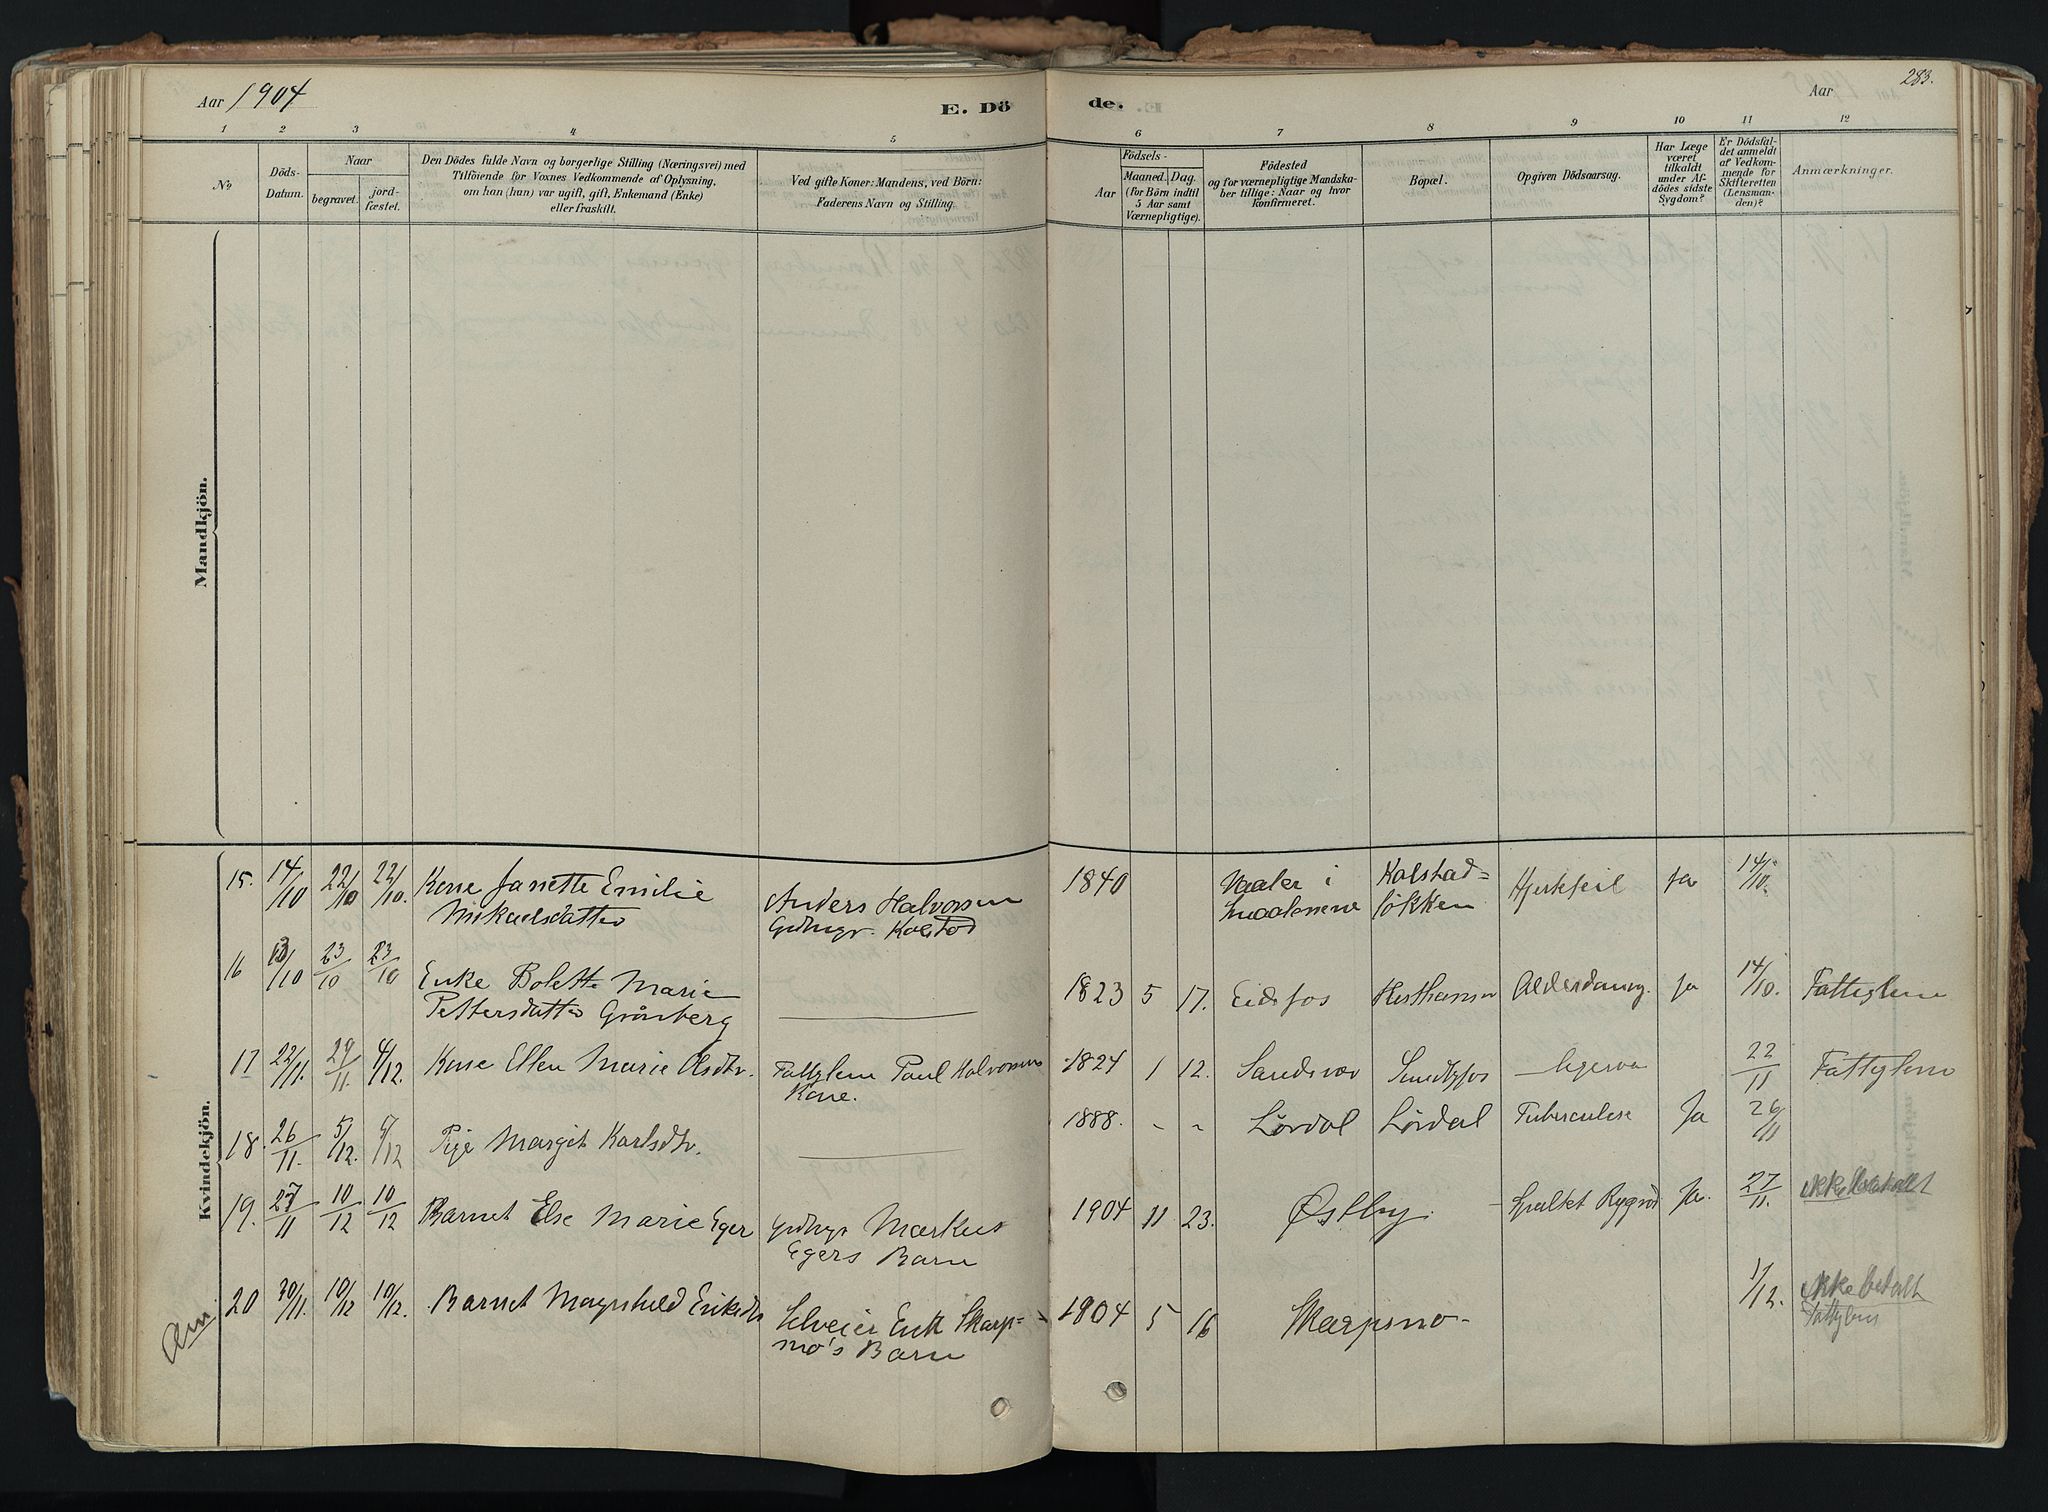 Aar 1904
E. Dö
de.
Aar
283.
1 2 3 4 5 6 7 8 9 10 11 12
No
Döds-
Datum.
Naar
begravet.
jord-
fæstet.
Den Dödes fulde Navn og borgerlige Stilling (Næringsvei) med
Tilföiende for Voxnes Vedkommende af Oplysning,
om han (hun) var ugift, gift, Enkemand (Enke)
eller fraskilt.
Ved gifte Koner: Mandens, ved Börn:
Faderens Navn og Stilling.
Födsels-
Aar
Maaned. Dag.
(for Börn indtil
5 Aar samt
Værnepligtige).
Födested
og for værnepligtige Mandska-
ber tillige: Naar og hvor
konfirmeret.
Bopæl.
Opgiven Dödsaarsag.
Har Læge
været
tilkaldt
under Af-
dödes sidste
Sygdom?
Er Dödsfal-
det anmeldt
af Vedkom-
mende for
Skifteretten
(Lensman-
den)?
Anmærkninger.
Mandkjön.
Kvindekjön.
15. 14/10 22/10 22/10. Kone Janette Emilie
Mikaelsdatter
Anders Halvorsen
Gdbngr. Kolstad
1840 Vaaler i
Smaalenene
Kolstad=
løkken
Hjertefeil ja 14/10.
16 /10 23/10 23/10 Enke Bolette Marie
Pettersdatter Grånberg
1823 5 17. Eidsfos
Alderdoms. ja 14/10. Fattiglem
17 22/11. 29/11 4/12. Kone Ellen Marie Olsdtr.
Fattiglem Paul Halvorsens
Kone.
1824 1 12. Sandsvær Sundbyfos 22/11 Fattiglem
18. 26/11. 5/12. /12 Pige Margit Karlsdtr.
1888. - - Lørdal Lørdal Tuberculose Ja 26/11
19. 27/11 10/12 10/12 Barnet Else Marie Eger
Gdbngr Markus
Egers Barn
1904 11 23. Østby. Spaltet Rygrad Ja. 27/11. ikke betalt
20 30/11. 10/12 10/12. Barnet Magnhild Eriksdtr
Selveier Erik Skarp=
nmo's Barn
1904 5 16 Skarpsno 1/12. ikke betalt
Fattiglem